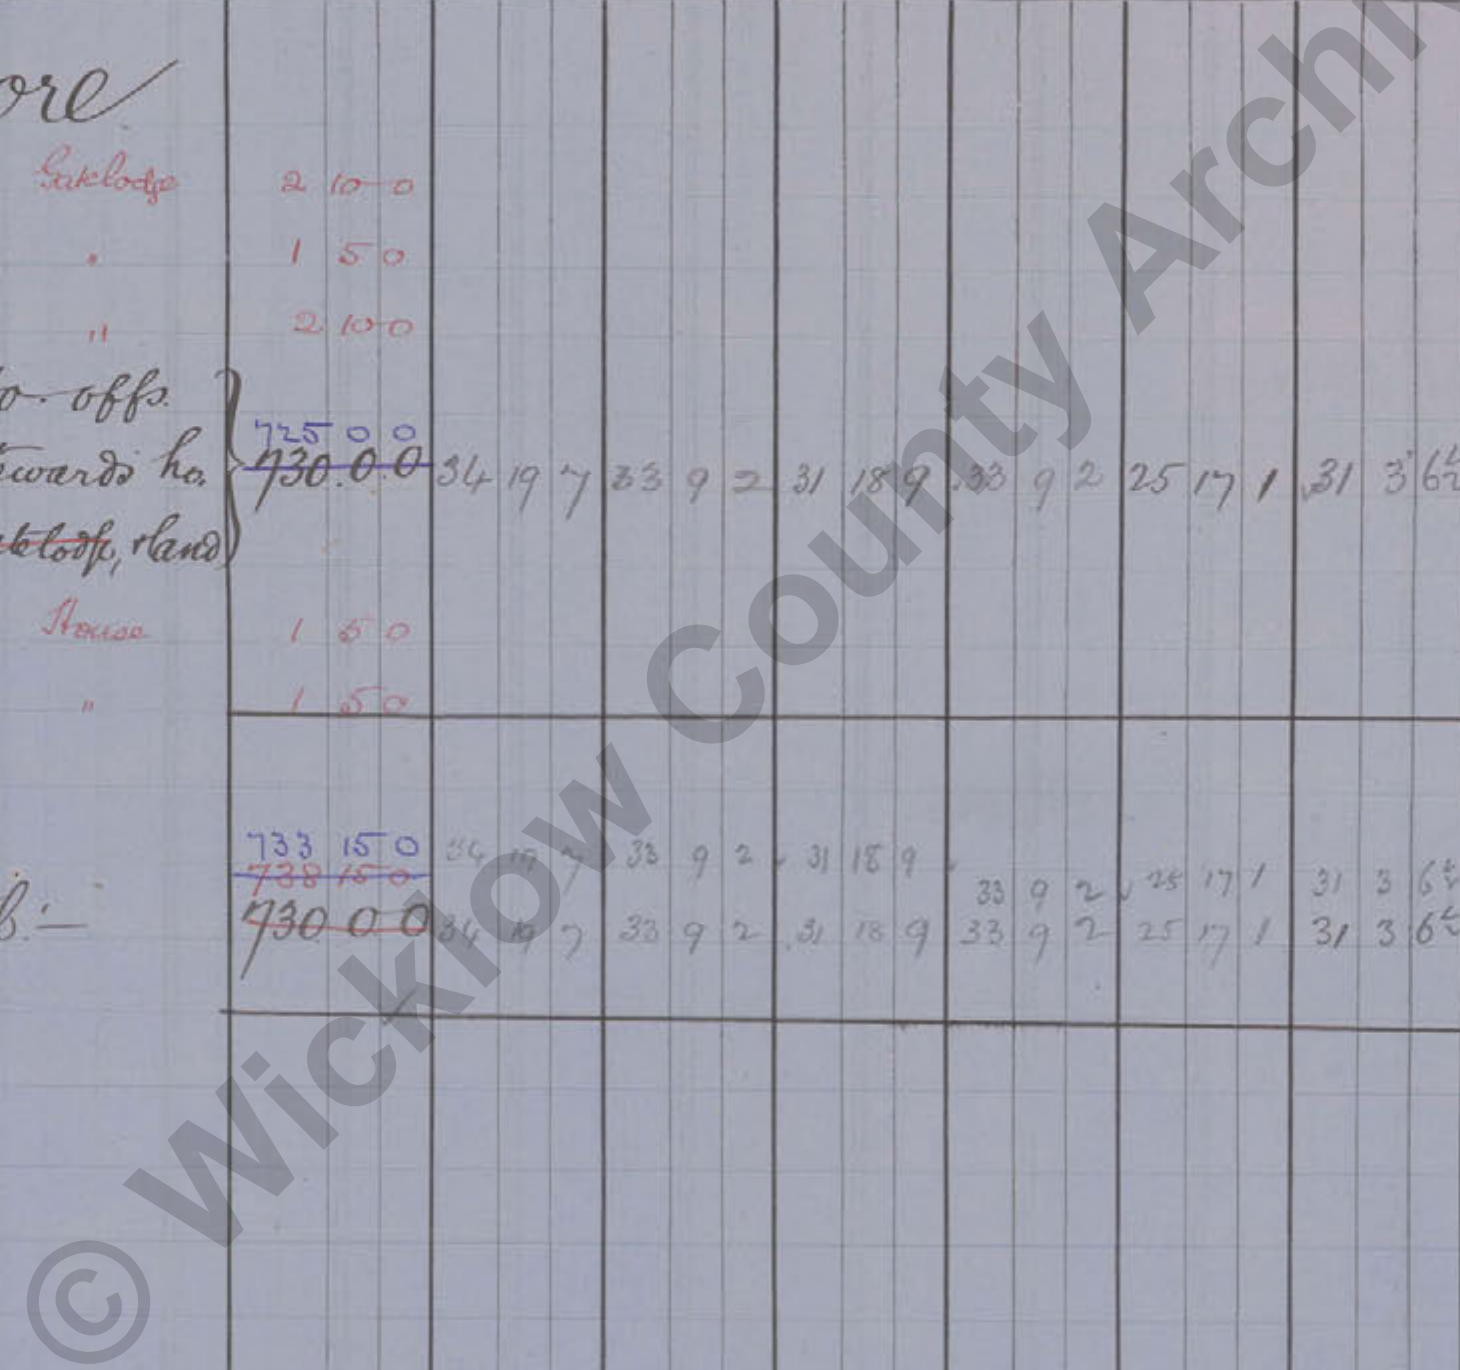 ore
Gatelodge 2 10 0
" 1 5 0
" 2 10 0
o. offs.
725 0 0
wards ho. 730.0.0 34 19 7 33 9 2 31 18 9 33 9 2 25 17 1 31 3 6½
telodge, & land
House 1 5 0
" 1 5 0
733 15 0 34 19 7 33 9 2 31 18 9
738 15 0 33 9 2 25 17 1 31 3 6½
:— 730 0 0 34 19 7 33 9 2 31 18 9 33 9 2 25 17 1 31 3 6½
© Wicklow County Archi